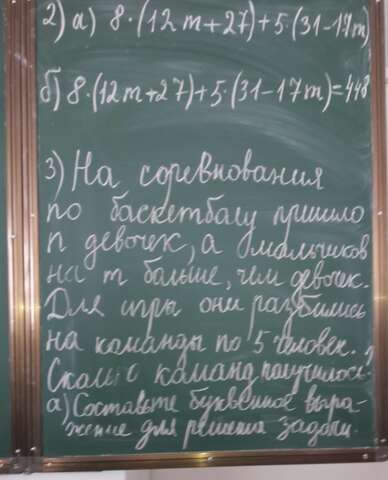 2) а) 8·(12m+27)+5·(31-17m)
б) 8·(12m+27)+5·(31-17m)=448
3) На соревнования
по баскетболу пришло
n девочек, а мальчиков
на m больше, чем девочек.
Для игры они разбились
на команды по 5 человек.
Сколько команд получилось?
а) Составьте буквенное выра-
жение для решения задачи.